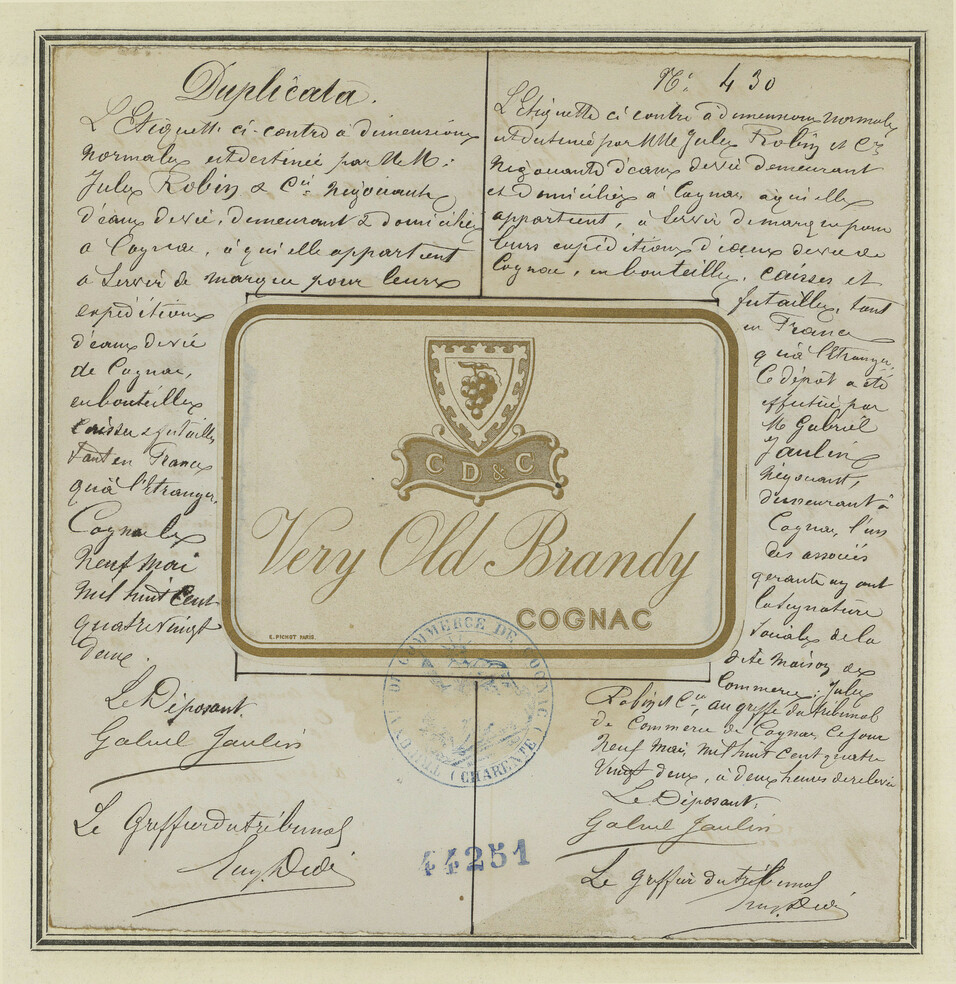 Duplicata.
L'Etiquette ci-contre à dimensions
normales est destinée par M.M.:
Jules Robin & Cie Négociants
d'eaux de vie, demeurant & domiciliés
à Cognac, à qui elle appartient
à servir de marque pour leurs
expéditions
d'eaux de vie
de Cognac,
en bouteilles
caisses & futailles
tant en France
qu'à l'Etranger.
Cognac le
neuf mai
mil huit cent
quatre vingt
deux.
Le Déposant
Gabriel Jaulin
Le Greffier du tribunal
N° 430
L'Etiquette ci contre à dimensions normales
est destinée par MM Jules Robin et Cie
Négociants d'eaux de vie demeurant
et domiciliés à Cognac, à qui elle
appartient, à servir de marque pour
leurs expéditions d'eaux de vie de
Cognac, en bouteilles, caisses et
futailles, tant
en France
qu'à l'Etranger.
Ce dépôt a été
effectué par
M. Gabriel
Jaulin
Négociant,
demeurant à
Cognac, l'un
des associés
gérants ayant
la signature
sociale de la
dite Maison de
Commerce: Jules
Robin et Cie, au greffe du tribunal
de Commerce de Cognac, ce jour
neuf mai, mil huit cent quatre
vingt deux, à deux heures de relevée
Le Déposant.
Gabriel Jaulin
Le Greffier du tribunal
C D & C
Very Old Brandy
COGNAC
E. PICHOT PARIS.
TRIBUNAL DE COMMERCE DE COGNAC (CHARENTE)
44251